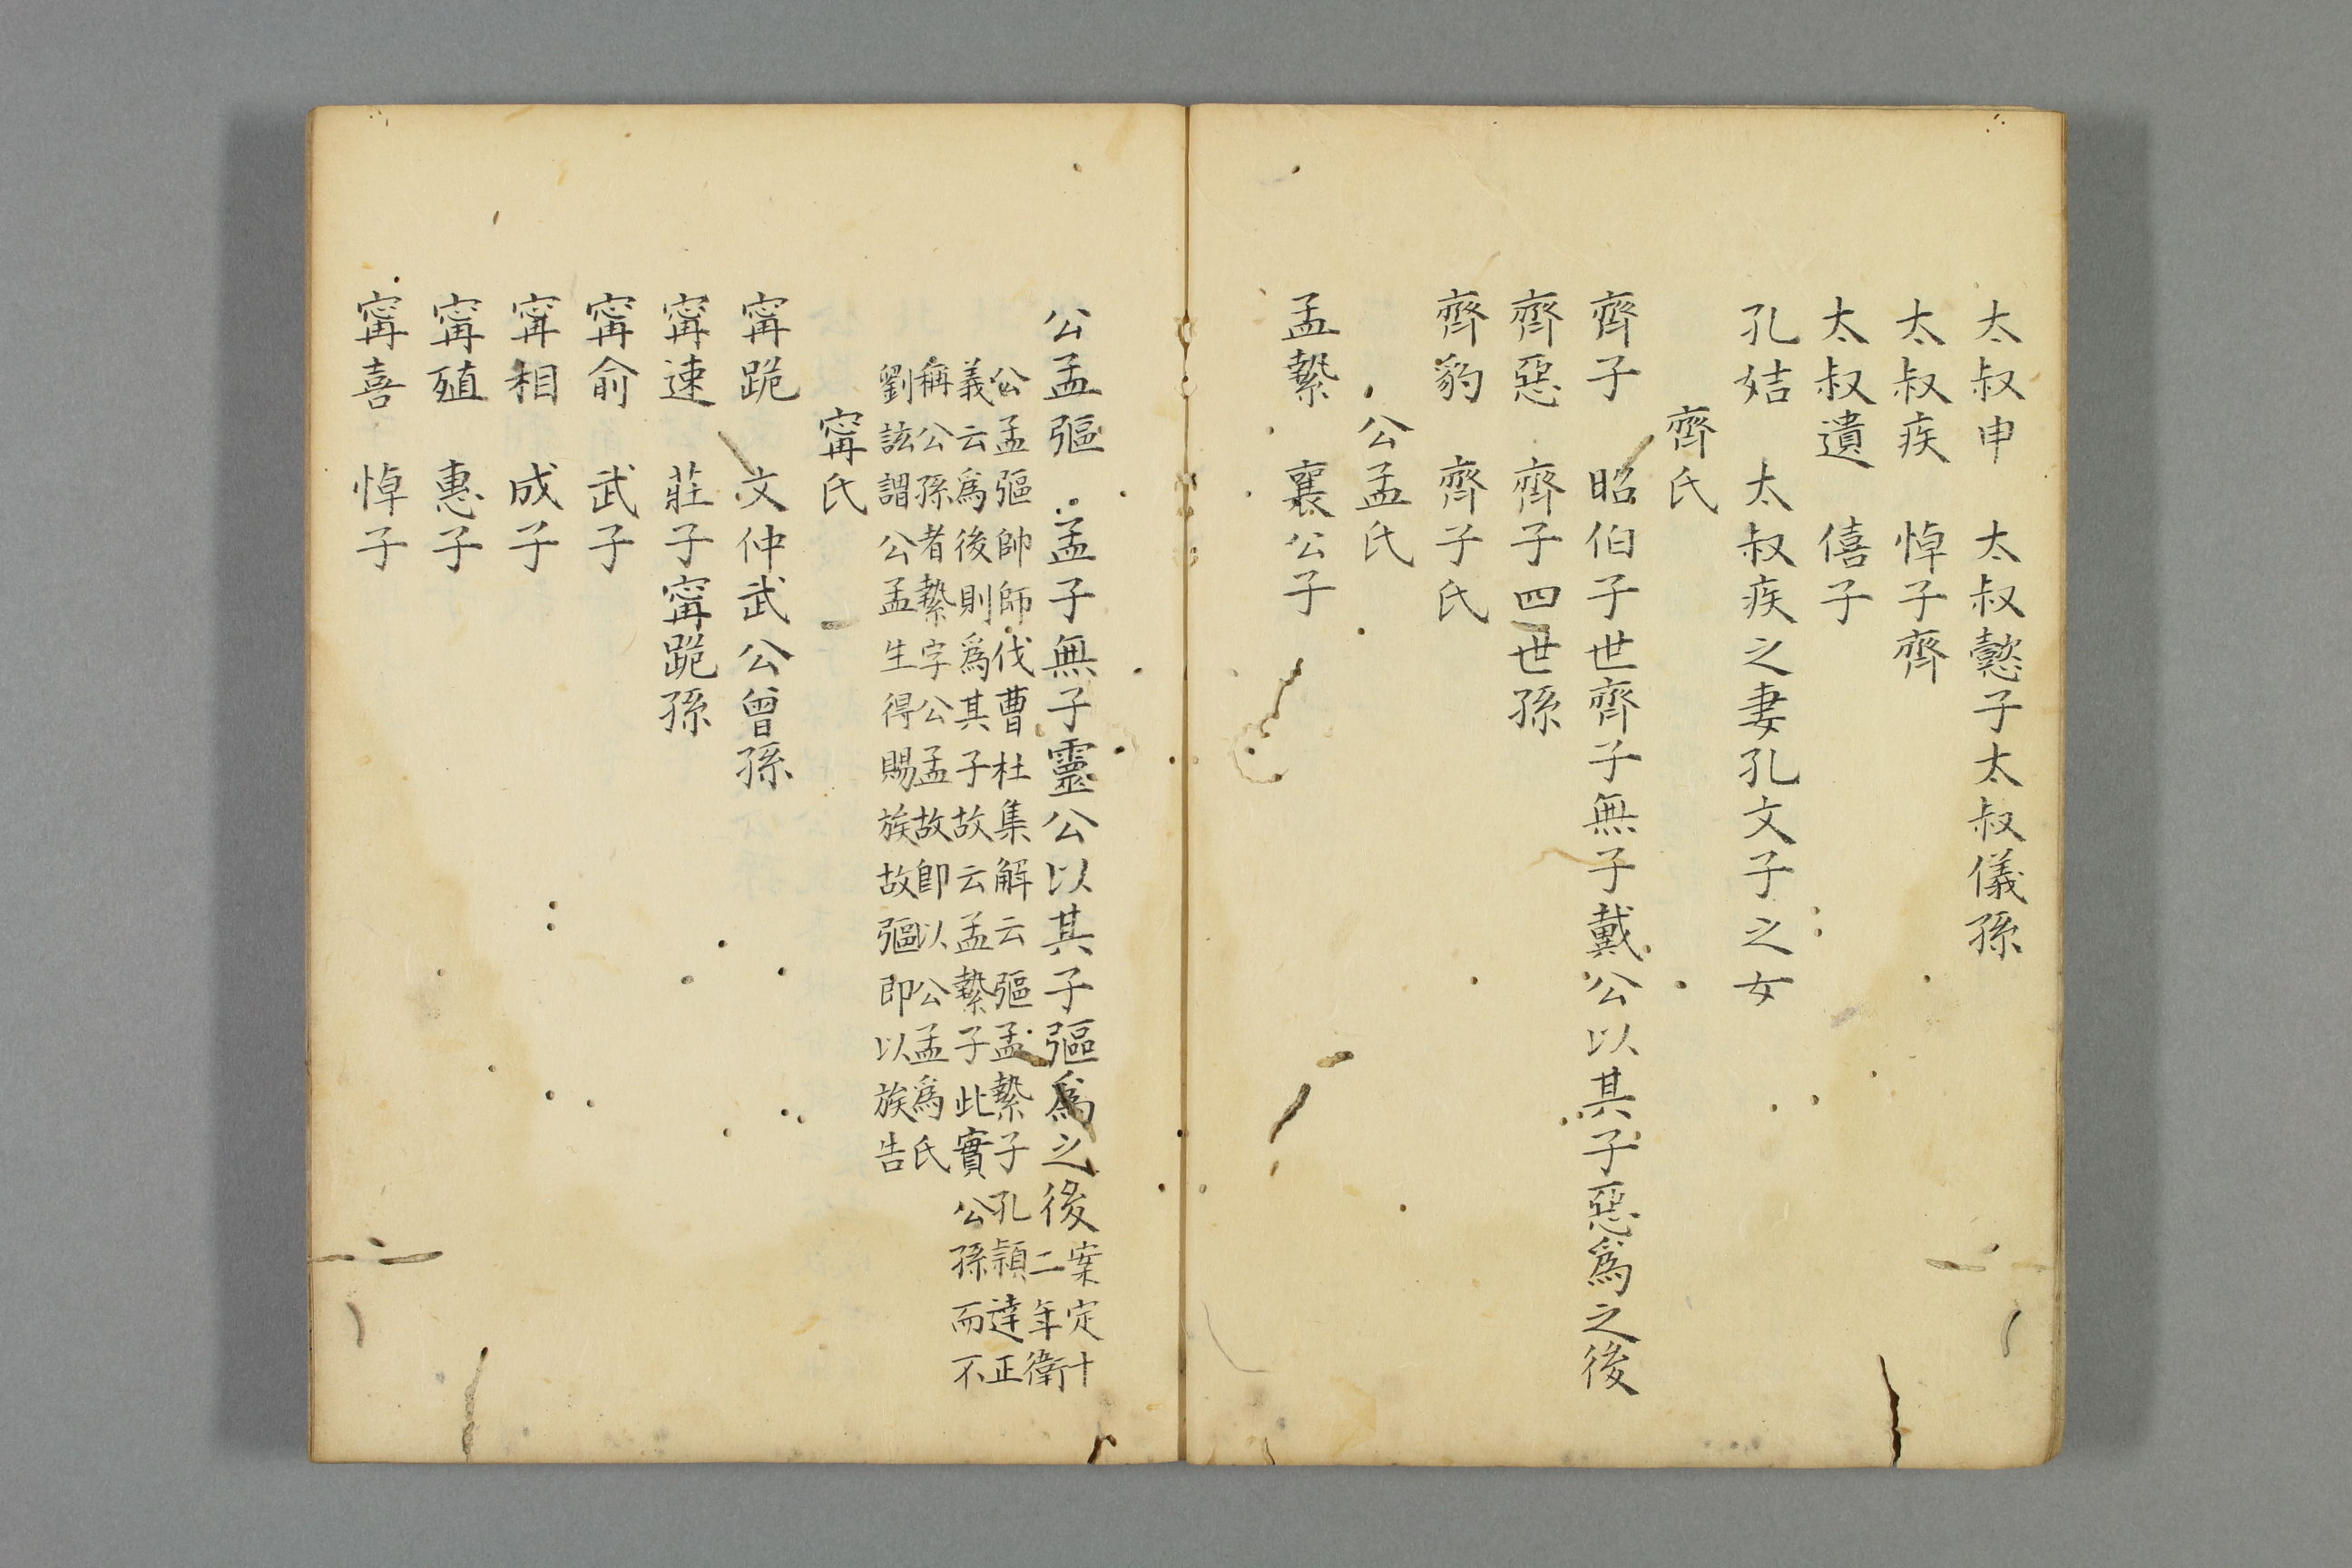 太叔申　太叔懿子太叔儀孫
太叔疾　悼子齊
太叔遺　僖子
孔姞　太叔疾之妻孔文子之女
齊氏
齊子　昭伯子世齊子無子戴公以其子惡爲之後
齊惡　齊子四世孫
齊豹　齊子氏
公孟氏
孟縶　襄公子
公孟彄　孟子無子靈公以其子彄爲之後案定十
二年衛
公孟彄帥師伐曹杜集解云彄孟縶子孔頴達正
義云爲後則爲其子故云孟縶子此實公孫而不
稱公孫者縶字公孟故卽以公孟爲氏
劉詃謂公孟生得賜族故彄即以族告
甯氏
甯跪　文仲武公曾孫
甯速　莊子甯跪孫
甯俞　武子
甯相　成子
甯殖　惠子
甯喜　悼子